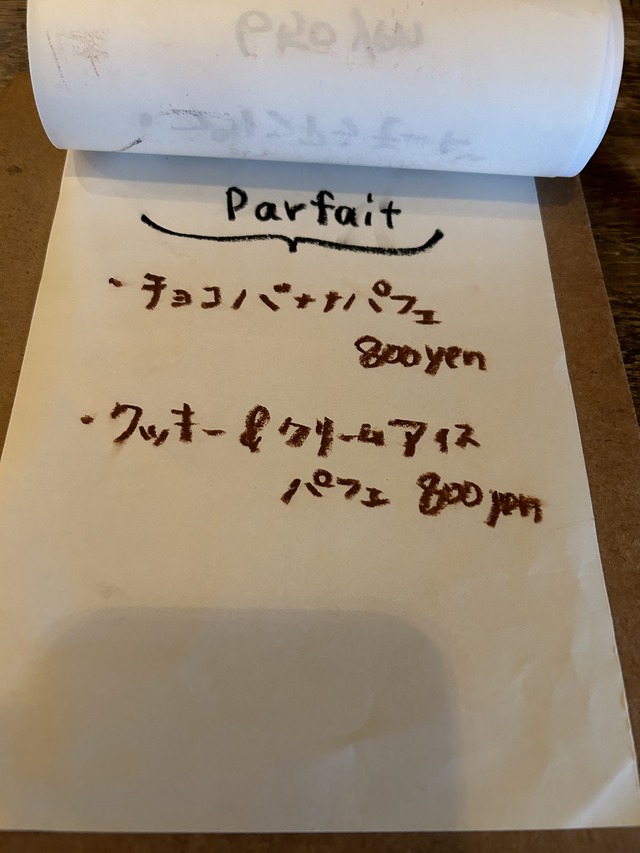 Parfait
・チョコバナナパフェ
800yen
・クッキー&クリームアイス
パフェ 800yen